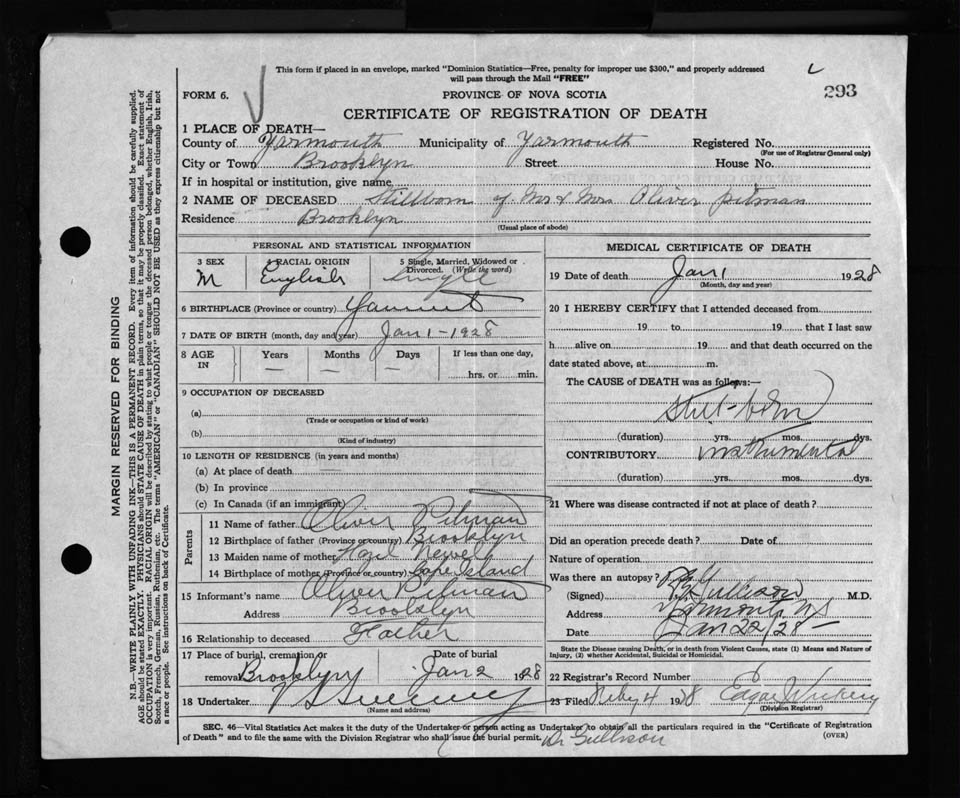 This form if placed in an envelope, marked "Dominion Statistics—Free, penalty for improper use $300," and properly addressed
will pass through the Mail "FREE"
293
FORM 6.
PROVINCE OF NOVA SCOTIA
CERTIFICATE OF REGISTRATION OF DEATH
1 PLACE OF DEATH—
County of Yarmouth Municipality of Yarmouth Registered No.
(For use of Registrar General only)
City or Town Brooklyn Street House No.
If in hospital or institution, give name
2 NAME OF DECEASED Stillborn of Mr & Mrs Oliver Pitman
Residence Brooklyn
(Usual place of abode)
PERSONAL AND STATISTICAL INFORMATION
3 SEX 4 RACIAL ORIGIN 5 Single, Married, Widowed or Divorced. (Write the word)
M English Single
6 BIRTHPLACE (Province or country)
7 DATE OF BIRTH (month, day and year) Jan 1-1928
8 AGE IN Years Months Days If less than one day,
— — — hrs. or min.
9 OCCUPATION OF DECEASED
(a)
(Trade or occupation or kind of work)
(b)
(Kind of industry)
10 LENGTH OF RESIDENCE (in years and months)
(a) At place of death
(b) In province
(c) In Canada (if an immigrant)
Parents
11 Name of father Oliver Pitman
12 Birthplace of father (Province or country) Brooklyn
13 Maiden name of mother Hazel Newell
14 Birthplace of mother (Province or country) Cape Island
15 Informant's name Oliver Pitman
Address Brooklyn
16 Relationship to deceased Father
17 Place of burial, cremation or removal Brooklyn Date of burial Jan 2 1928
18 Undertaker V S Sweeney
(Name and address)
MEDICAL CERTIFICATE OF DEATH
19 Date of death Jan 1 1928
(Month, day and year)
20 I HEREBY CERTIFY that I attended deceased from
19 to 19 that I last saw
h alive on 19 and that death occurred on the
date stated above, at m.
The CAUSE of DEATH was as follows:—
Still-born
(duration) yrs. mos. dys.
CONTRIBUTORY instrumental
(duration) yrs. mos. dys.
21 Where was disease contracted if not at place of death?
Did an operation precede death? Date of
Nature of operation
Was there an autopsy?
(Signed) Gullison M.D.
Address Yarmouth NS
Date Jan 22/28
State the Disease causing Death, or in death from Violent Causes, state (1) Means and Nature of
Injury, (2) whether Accidental, Suicidal or Homicidal.
22 Registrar's Record Number
23 Filed Feby 4 1928 Edgar
(Division Registrar)
SEC. 46—Vital Statistics Act makes it the duty of the Undertaker or person acting as Undertaker to obtain all the particulars required in the "Certificate of Registration
of Death" and to file the same with the Division Registrar who shall issue the burial permit. Dr Gullison (OVER)
MARGIN RESERVED FOR BINDING
N.B.—WRITE PLAINLY WITH UNFADING INK—THIS IS A PERMANENT RECORD. Every item of information should be carefully supplied.
AGE should be stated EXACTLY. PHYSICIANS should STATE CAUSE OF DEATH in plain terms, so that it may be properly classified. Exact statement of
OCCUPATION is very important. RACIAL ORIGIN will be described by stating to what people or tongue the deceased person belonged, whether English, Irish,
Scotch, French, German, Russian, Ruthenian, etc. The terms "AMERICAN" or "CANADIAN" SHOULD NOT BE USED as they express citizenship but not
a race or people. See instructions on back of Certificate.